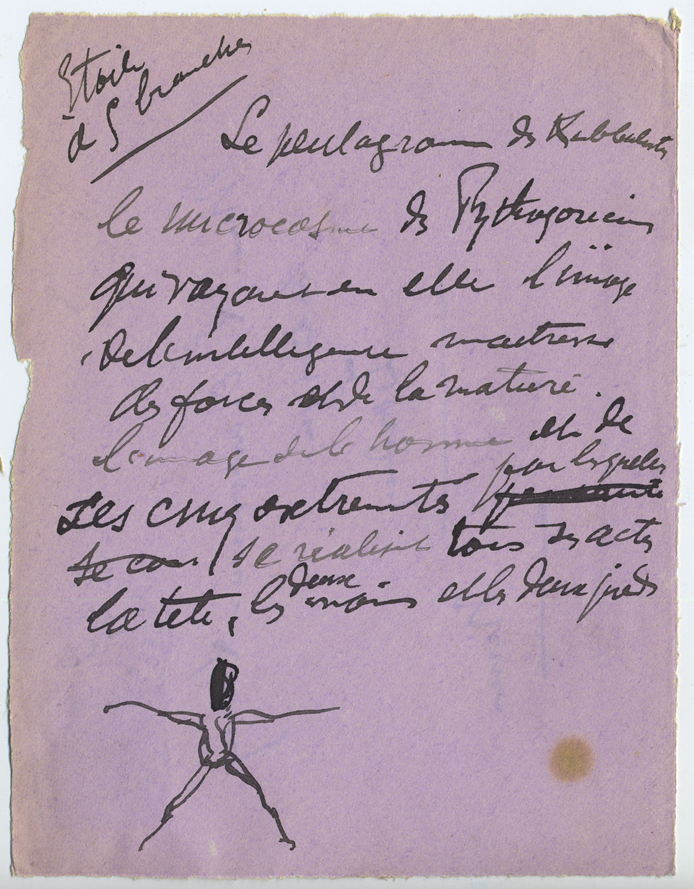 Etoile
à 5 branches
Le pentagramme des Kabbalistes
le microcosme des Pythagoriciens
qui voyaient en elle l'image
de l'intelligence maitresse
des forces et de la matière.
l'image de l'homme et de
ses cinq extremités par lesquelles
se réalisent tous ses actes
la tête, les deux mains et les deux pieds